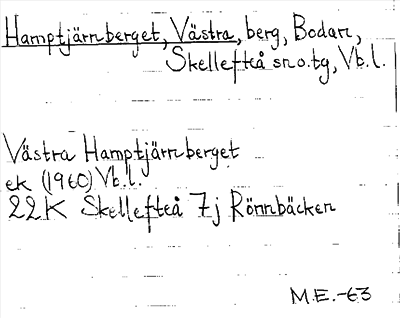 Hamptjärnberget, Västra, berg, Bodan,
Skellefteå sn.o.tg, Vb.l.
Västra Hamptjärnberget
ek (1960) Vb.l.
22K Skellefteå 7j Rönnbäcken
M.E.-63